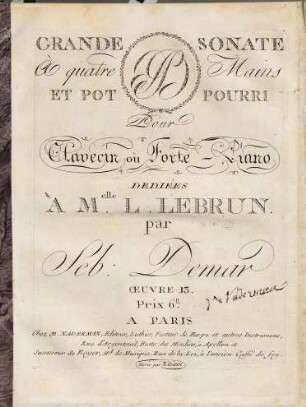 GRANDE SONATE
À quatre Mains
ET POT POURRI
Pour
Clavecin ou Forte-Piano
DEDIÉES
À M.elle L. LEBRUN.
par
Seb: Demar
ŒUVRE 13.
Prix 6#
A PARIS
Chez M. NADERMAN, Editeur, Luthier, Facteur de Harpe et autres Instrumens,
Rue d'Argenteuil, Butte des Moulins, à Apollon et
Successeur de BOYER, Md. de Musique, Rue de la Loi, à l'ancien Caffé de Foy.